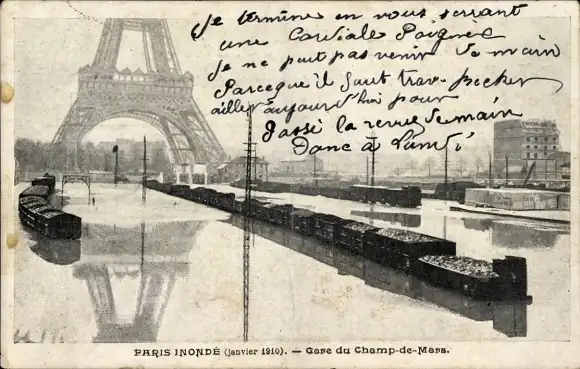 Je termine en vous serrant
une Cordiale Poignée
Je ne peut pas venir Demain
Parceque il faut
aller aujourd'hui pour
la revue Demain
Donc a Lundi
PARIS INONDÉ (janvier 1910). — Gare du Champ-de-Mars.